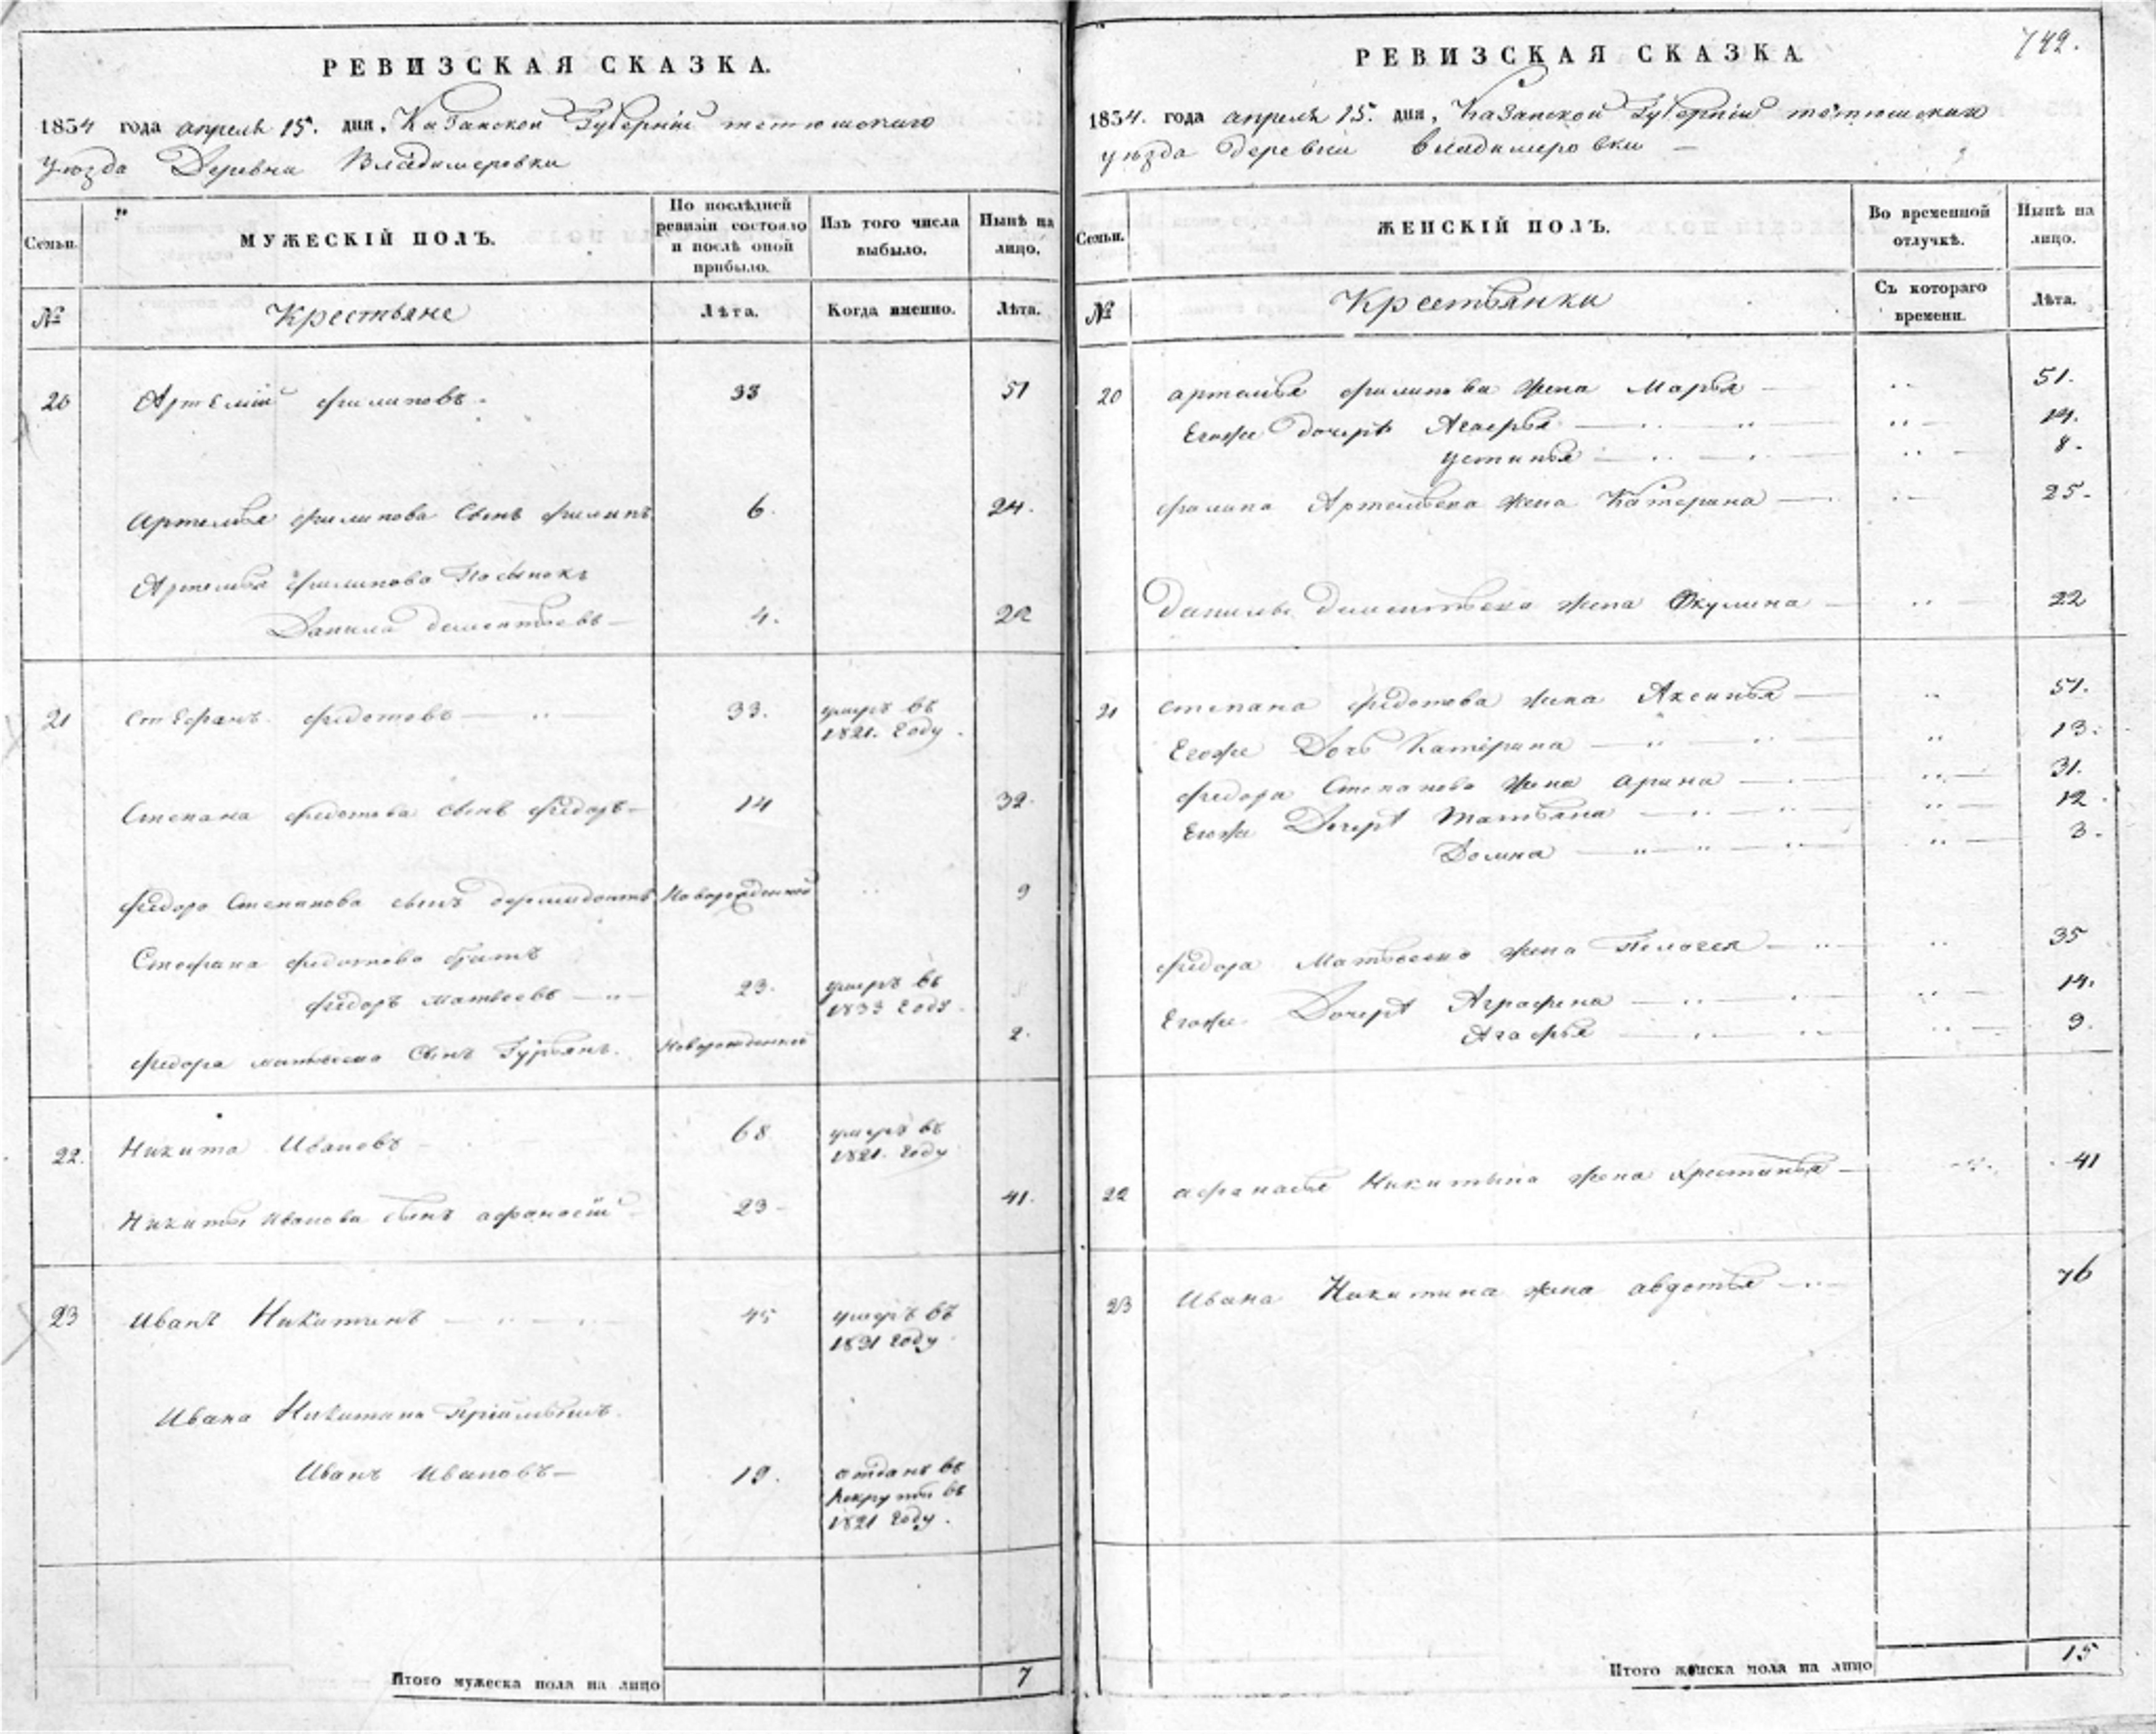 РЕВИЗСКАЯ СКАЗКА.
1834 года апреля 15. дня, Казанской Губернии тетюшскаго
уезда Деревни Владимеровки
Семьи.
МУЖЕСКІЙ ПОЛЪ.
По послѣдней ревизіи состояло и послѣ оной прибыло.
Изъ того числа выбыло.
Нынѣ на лицо.
№
Крестьяне
Лѣта.
Когда именно.
Лѣта.
20 Артемий филиповъ 33 51
Артемья филипова сынъ филипъ 6. 24.
Артемья филипова
Данила дементьевъ 4. 22
21 Стефанъ федотовъ 33. умеръ въ
1821. году.
Степана федотова сынъ федоръ 14 32.
федора Степанова сынъ новорожденной 9
Стефана федотова братъ
федоръ матвеевъ 23. умеръ въ
1833 году.
федора матвеева сынъ Гурьянъ. новорожденной 2.
22. Никита Ивановъ 68 умеръ въ
1821. году
Никиты Иванова сынъ афанасий 23 41.
23 Иванъ Никитинъ 45 умеръ въ
1831 году
Ивана Никитина приимышъ.
Иванъ Ивановъ 19. отданъ въ
рекруты въ
1821 году.
Итого мужеска пола на лицо 7
742.
РЕВИЗСКАЯ СКАЗКА
1834. года апреля 15. дня, Казанской Губернии тетюшскаго
уезда деревни владимеровки
Семьи.
ЖЕНСКІЙ ПОЛЪ.
Во временной отлучкѣ.
Нынѣ на лицо.
№
Крестьянки
Съ котораго времени.
Лѣта.
20 артемья филипова жена Марья 51.
Егоже дочери 14.
устинья 8.
филипа Артемьева жена Катерина 25.
данилы дементьева жена Окулина 22
21 степана федотова жена Аксинья 51.
Егоже Дочь Катерина 13.
федора Степанова жена арина 31.
Егоже Дочери Татьяна 12.
Домна 3.
федора Матвеева жена Пелагея 35
Егоже Дочери Аграфена 14.
Агафья 9.
22 афанасья Никитина жена Хрестинья 41
23 Ивана Никитина жена авдотья 76
Итого женска пола на лицо 15